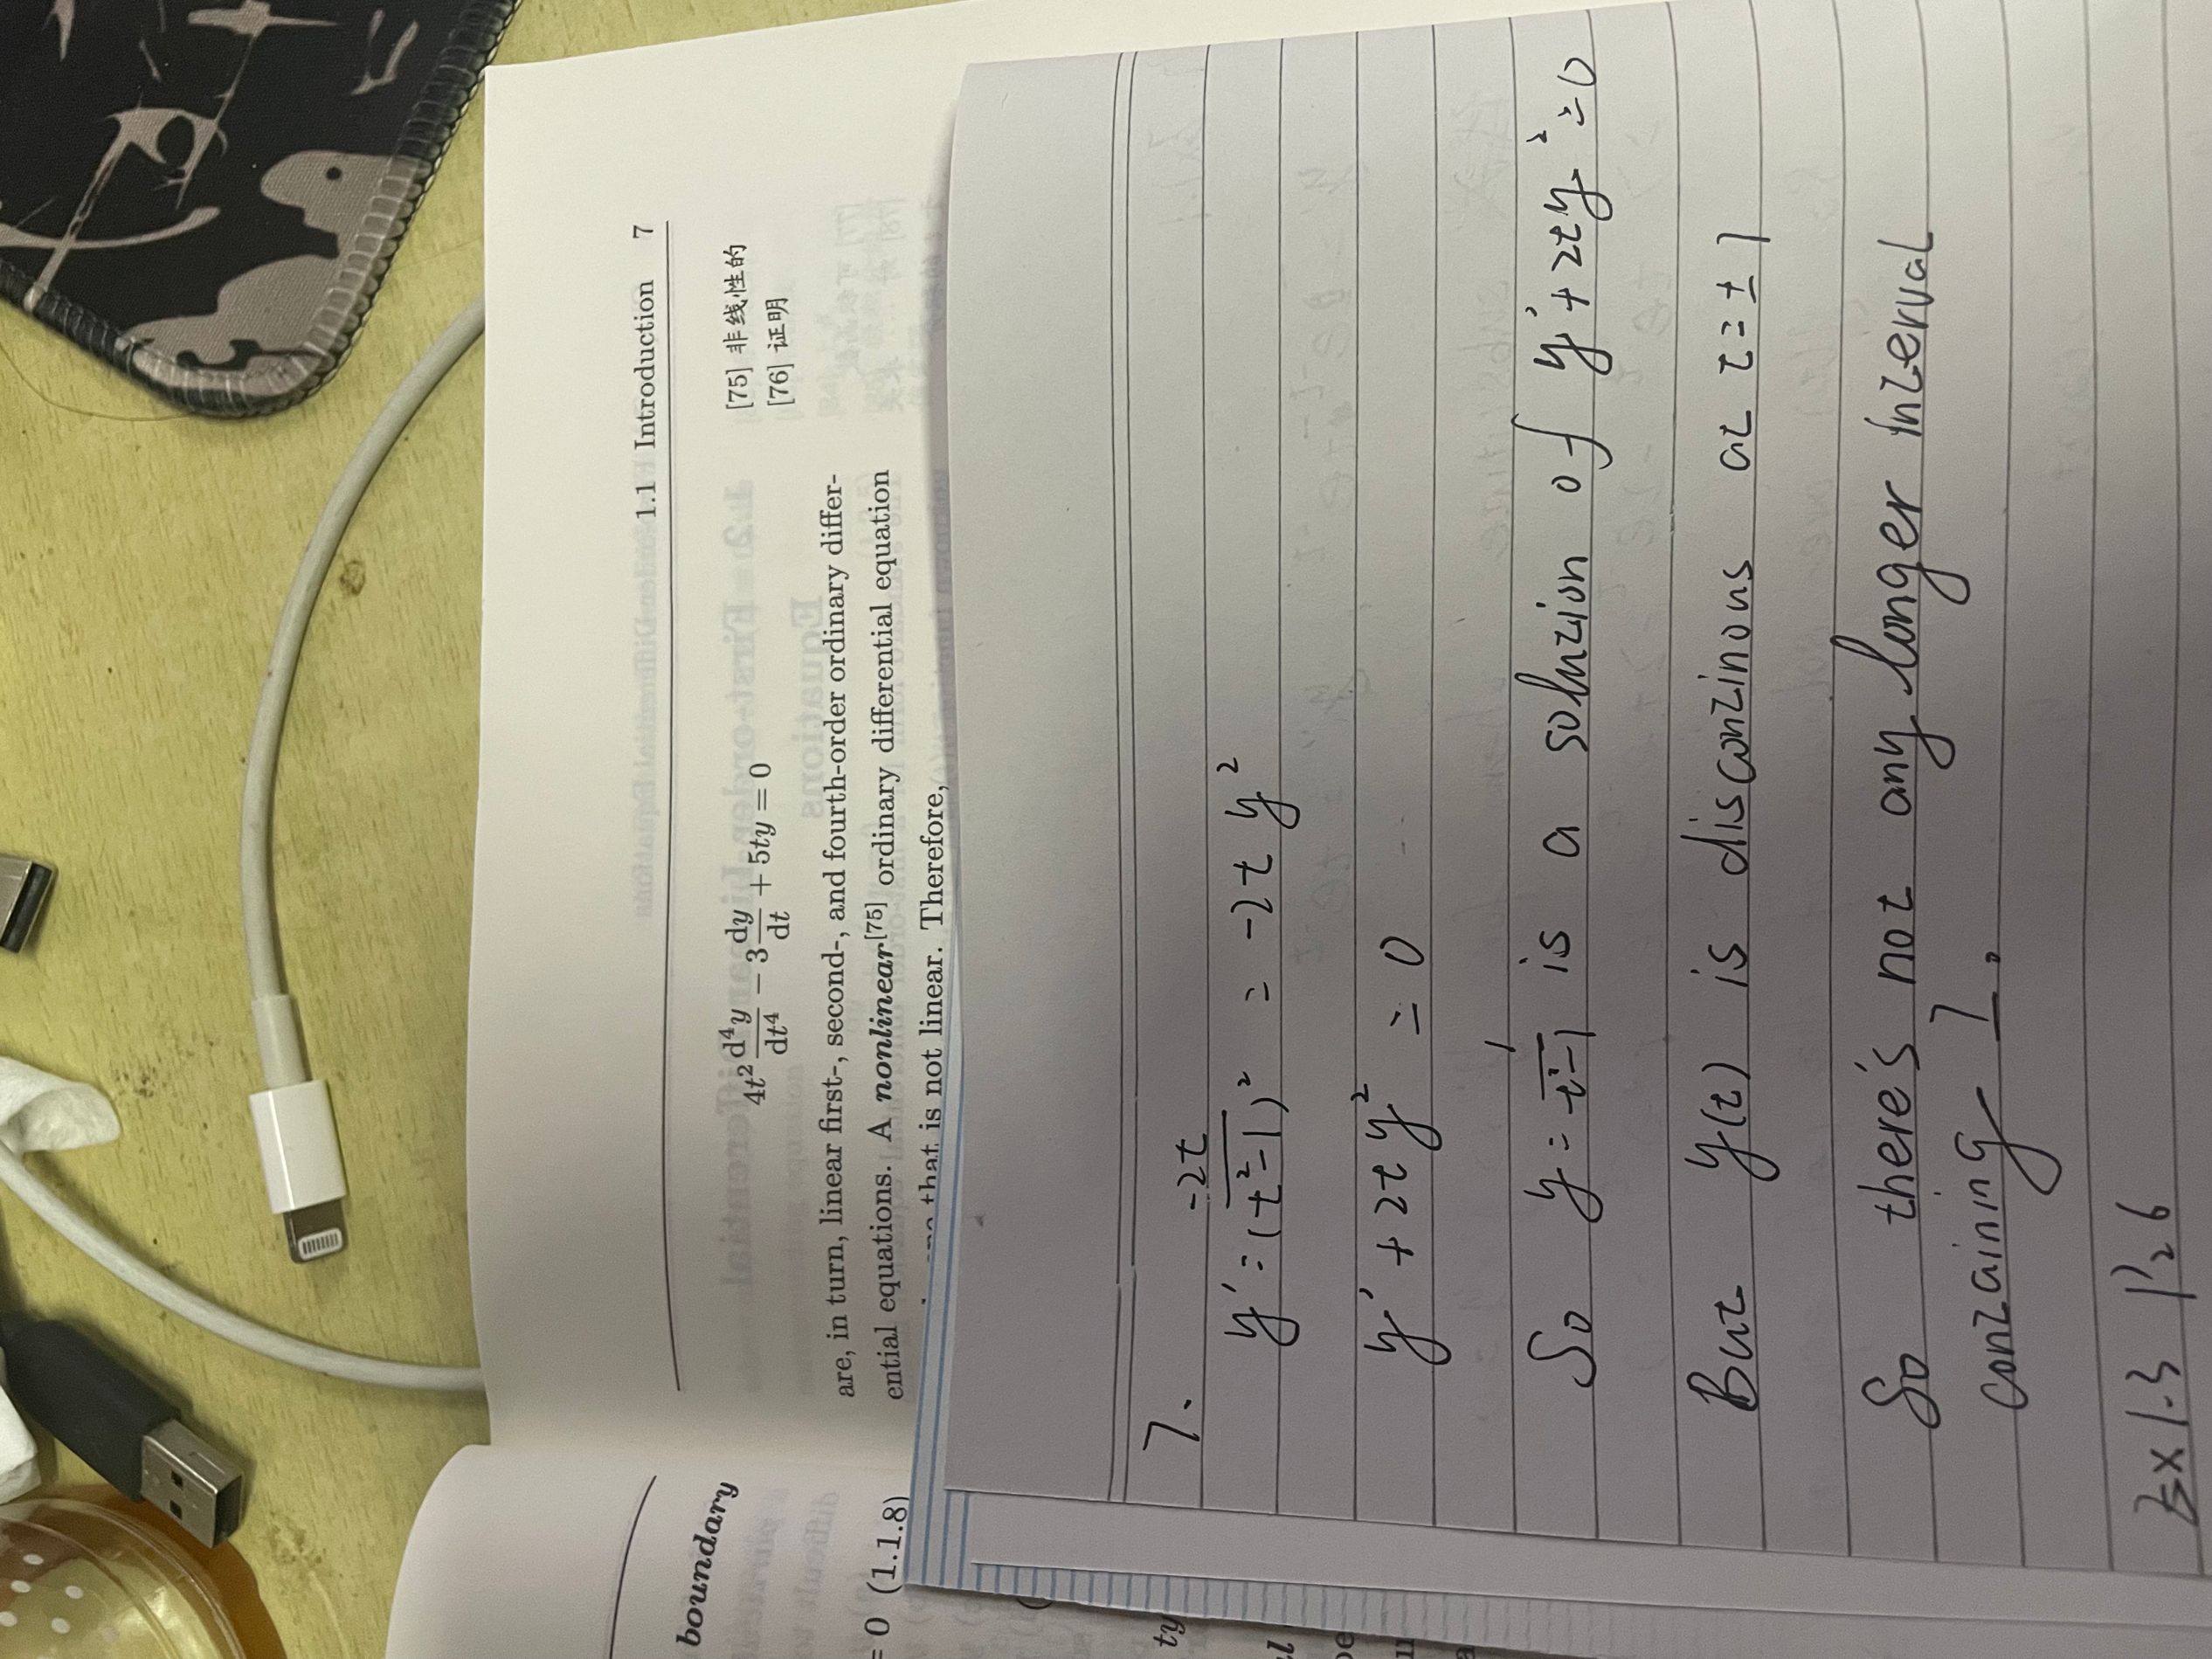 1.1 Introduction 7
boundary
4t² d⁴y/dt⁴ − 3 dy/dt + 5ty = 0
[75] 非线性的
[76] 证明
are, in turn, linear first-, second-, and fourth-order ordinary differ-
ential equations. A nonlinear[75] ordinary differential equation
= 0 (1.1.8)
that is not linear. Therefore,
ty
7.
y' = -2t/(t²-1)² = -2t y²
y' + 2t y² = 0
So y = 1/(t²-1) is a soluzion of y' + 2ty² = 0
But y(t) is disconzinous at t = ± 1
So there's not any longer inzerval
conzaining I.
Ex 1.3 P26